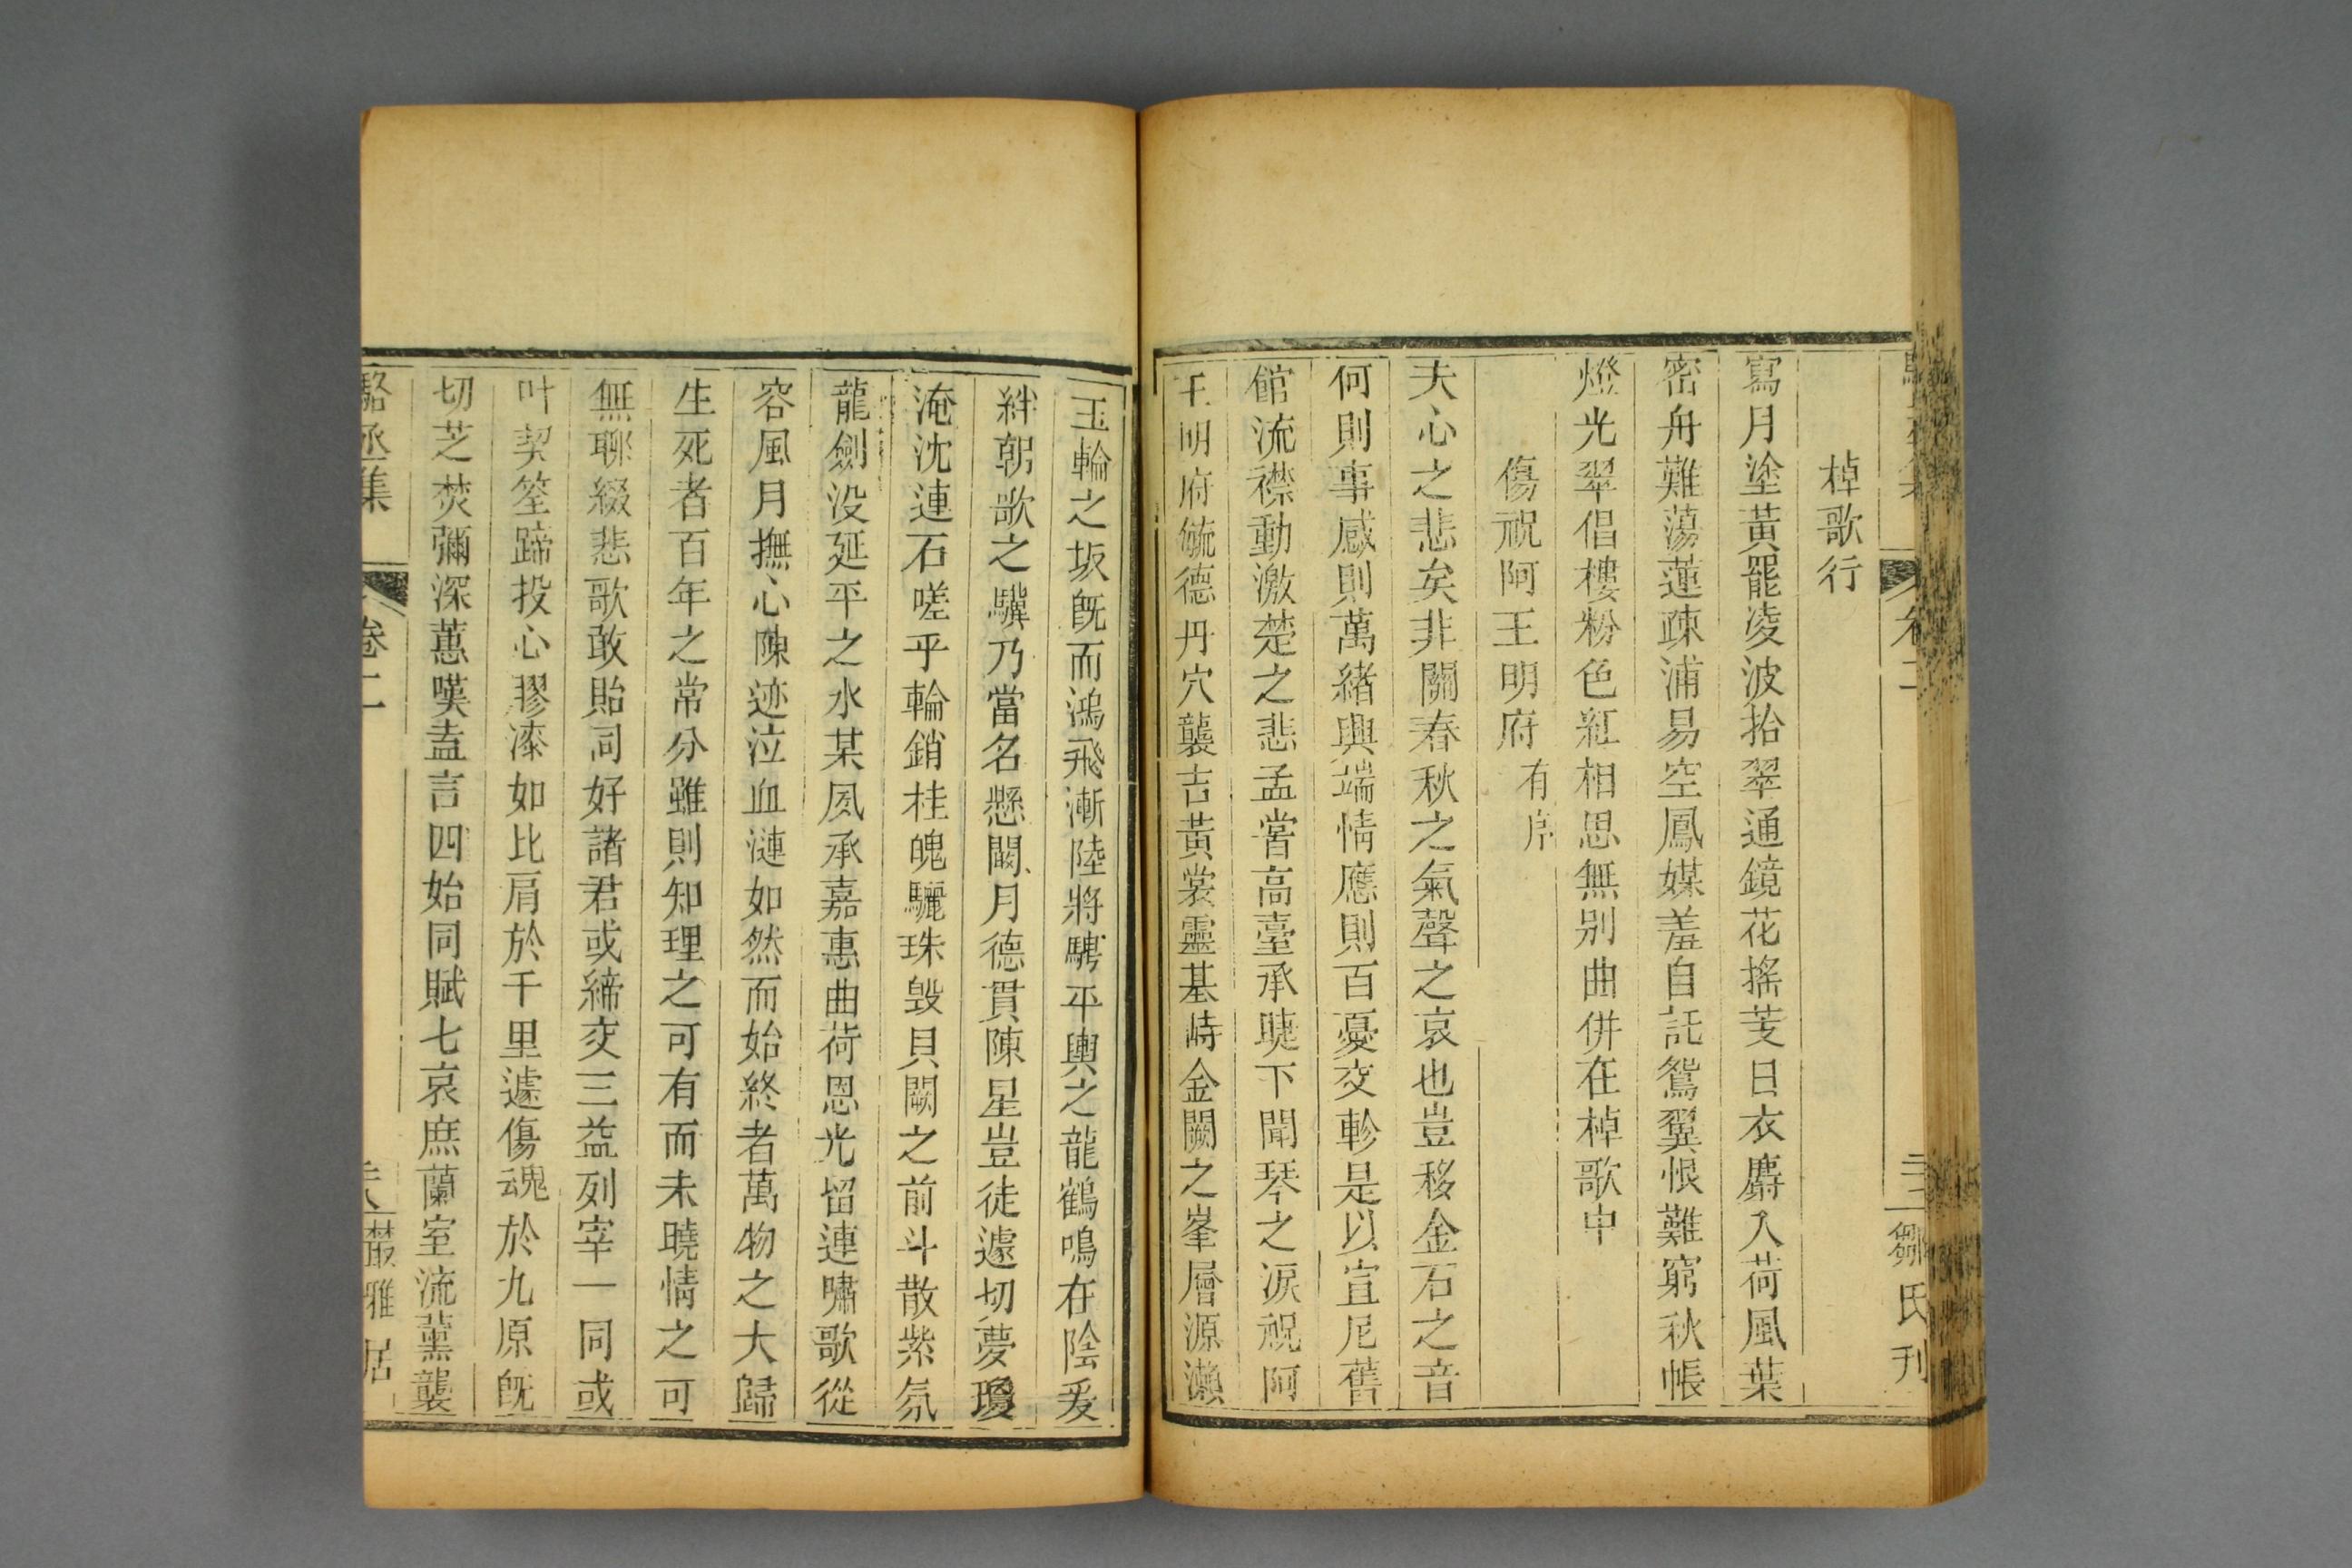 棹歌行
寫月塗黃罷凌波拾翠通鏡花搖芰日衣麝入荷風葉
密舟難蕩蓮疎浦易空鳳媒羞自託鴛翼恨難窮秋帳
燈光翠倡樓粉色紅相思無別曲併在棹歌中
傷祝阿王明府有序
夫心之悲矣非關春秋之氣聲之哀也豈移金石之音
何則事感則萬緒興端情應則百憂交軫是以宣尼舊
館流襟動激楚之悲孟嘗高臺承睫下聞琴之淚祝阿
王明府毓德丹穴襲吉黃裳靈基峙金闕之峯層源瀨
鄒氏刊
玉輪之坂旣而鴻飛漸陸將騁平輿之龍鶴鳴在陰爰
絆朝歌之驥乃當名懸闕月德貫陳星豈徒遽切夢瓊
淹沈連石嗟乎輪銷桂魄驪珠毀貝闕之前斗散紫氛
龍劍沒延平之水某夙承嘉惠曲荷恩光留連嘯歌從
容風月撫心陳迹泣血漣如然而始終者萬物之大歸
生死者百年之常分雖則知理之可有而未曉情之可
無聊綴悲歌敢貽同好諸君或締交三益列宰一同或
叶契筌蹄投心膠漆如比肩於千里遽傷魂於九原旣
切芝焚彌深蕙嘆盍言四始同賦七哀庶蘭室流薰襲
駱丞集 卷二 叢雅居